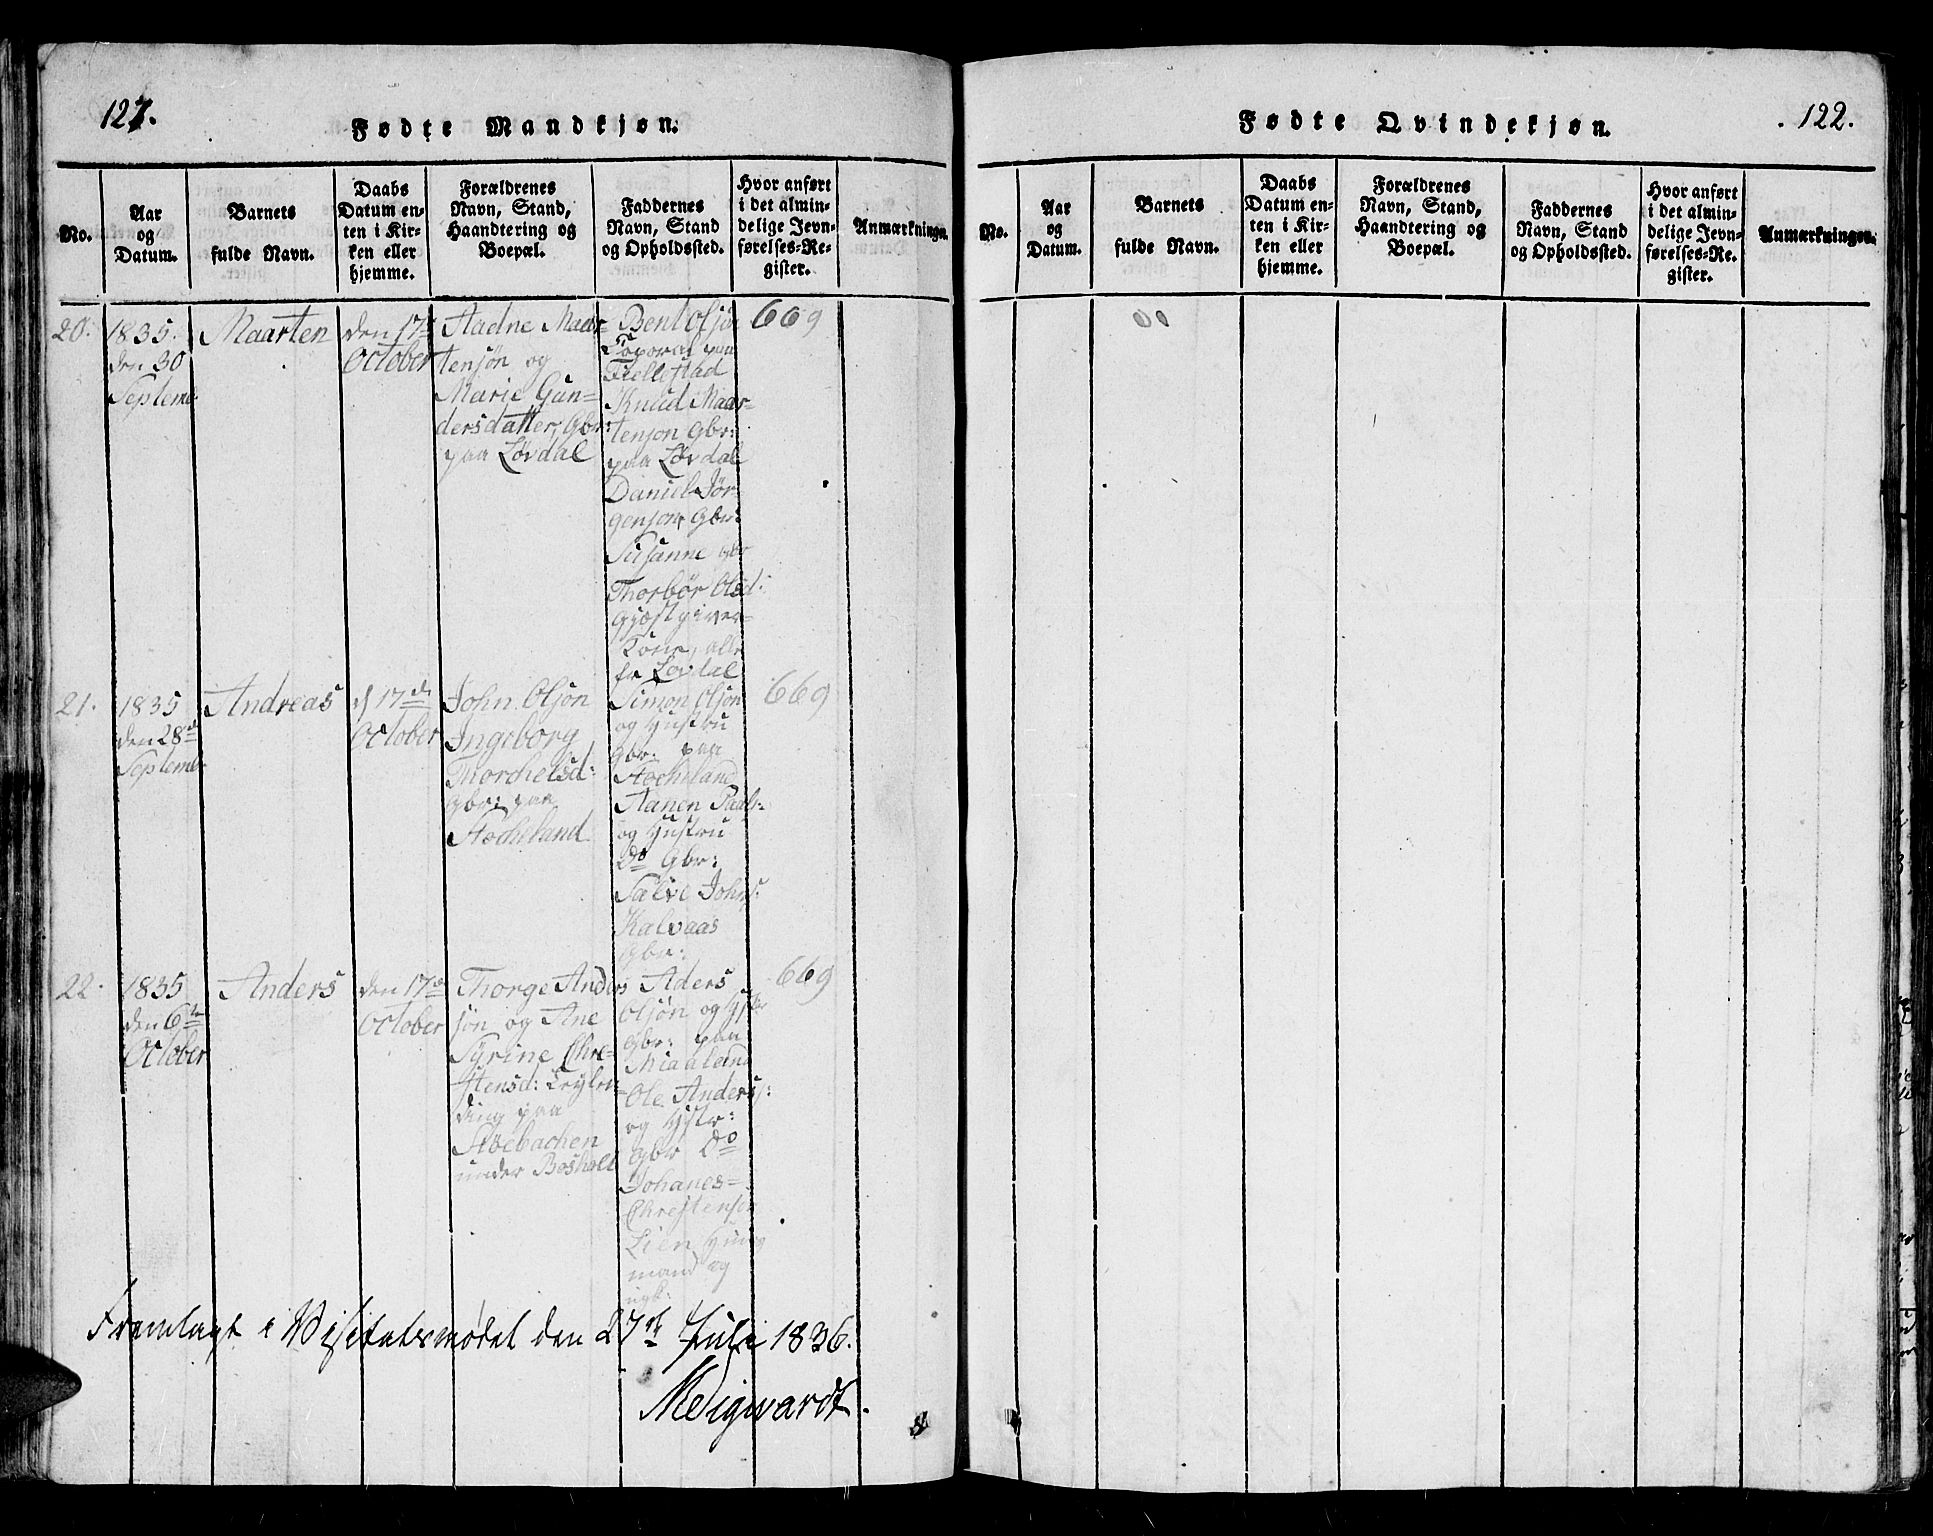 127.
Fødte Mandkjøn.
No.
Aar
og
Datum.
Barnets
fulde Navn.
Daabs
Datum en-
ten i Kir-
ken eller
hjemme.
Forældrenes
Navn, Stand,
Haandtering og
Boepæl.
Faddernes
Navn, Stand
og Opholdssted.
Hvor anført
i det almin-
delige Jevn-
førelses-Re-
gister.
Anmærkninger.
20.
1835.
den 30
Septemb.
Maarten
den 17de
October
Aadne Maar-
tensøn og
Marie Gun-
dersdatter, Gbr:
paa Lövdal
Bent Olsøn
Coporal paa
Fiellestad
Knud Maar-
tenson Gbr:
paa Lövdal
Daniel Jör-
genson, Gbr:
Susanne
Thorbör Olsd:
Gjæstgiver-
Kone, alle
fr Lövdal
669
21.
1835
den 28de
Septemb.
Andreas
d 17de
October
John Olsøn
Ingeborg
Thorchelsd:
Gbr: paa
Stocheland
Simon Olsøn
og Hustru
Gbr: paa
Stocheland
Aanen Paals-
og Hustru
do Gbr:
Salve Johns:
Kalvaas
Gbr:
669
22.
1835
den 6te
October
Anders
den 17de
October
Thorge Anders
søn og Ane
Syrine Chre-
stensd:
ding paa
Stoebachen
under Bosholt
Aders
Olsøn og
Gbr: paa
Ole Anders:
og Hustr:
Gbr do
Johanes
Chrestensøn
Lien Huus
mand og
669
Fremlagt i Visitatsmødet den 27de Juli 1836.
122.
Fødte Qvindekjøn.
No.
Aar
og
Datum.
Barnets
fulde Navn.
Daabs
Datum en-
ten i Kir-
ken eller
hjemme.
Forældrenes
Navn, Stand,
Haandtering og
Boepæl.
Faddernes
Navn, Stand
og Opholdssted.
Hvor anført
i det almin-
delige Jevn-
førelses-Re-
gister.
Anmærkninger.